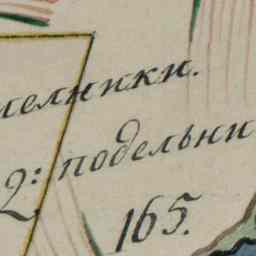 мелники.
2: подельни
165.